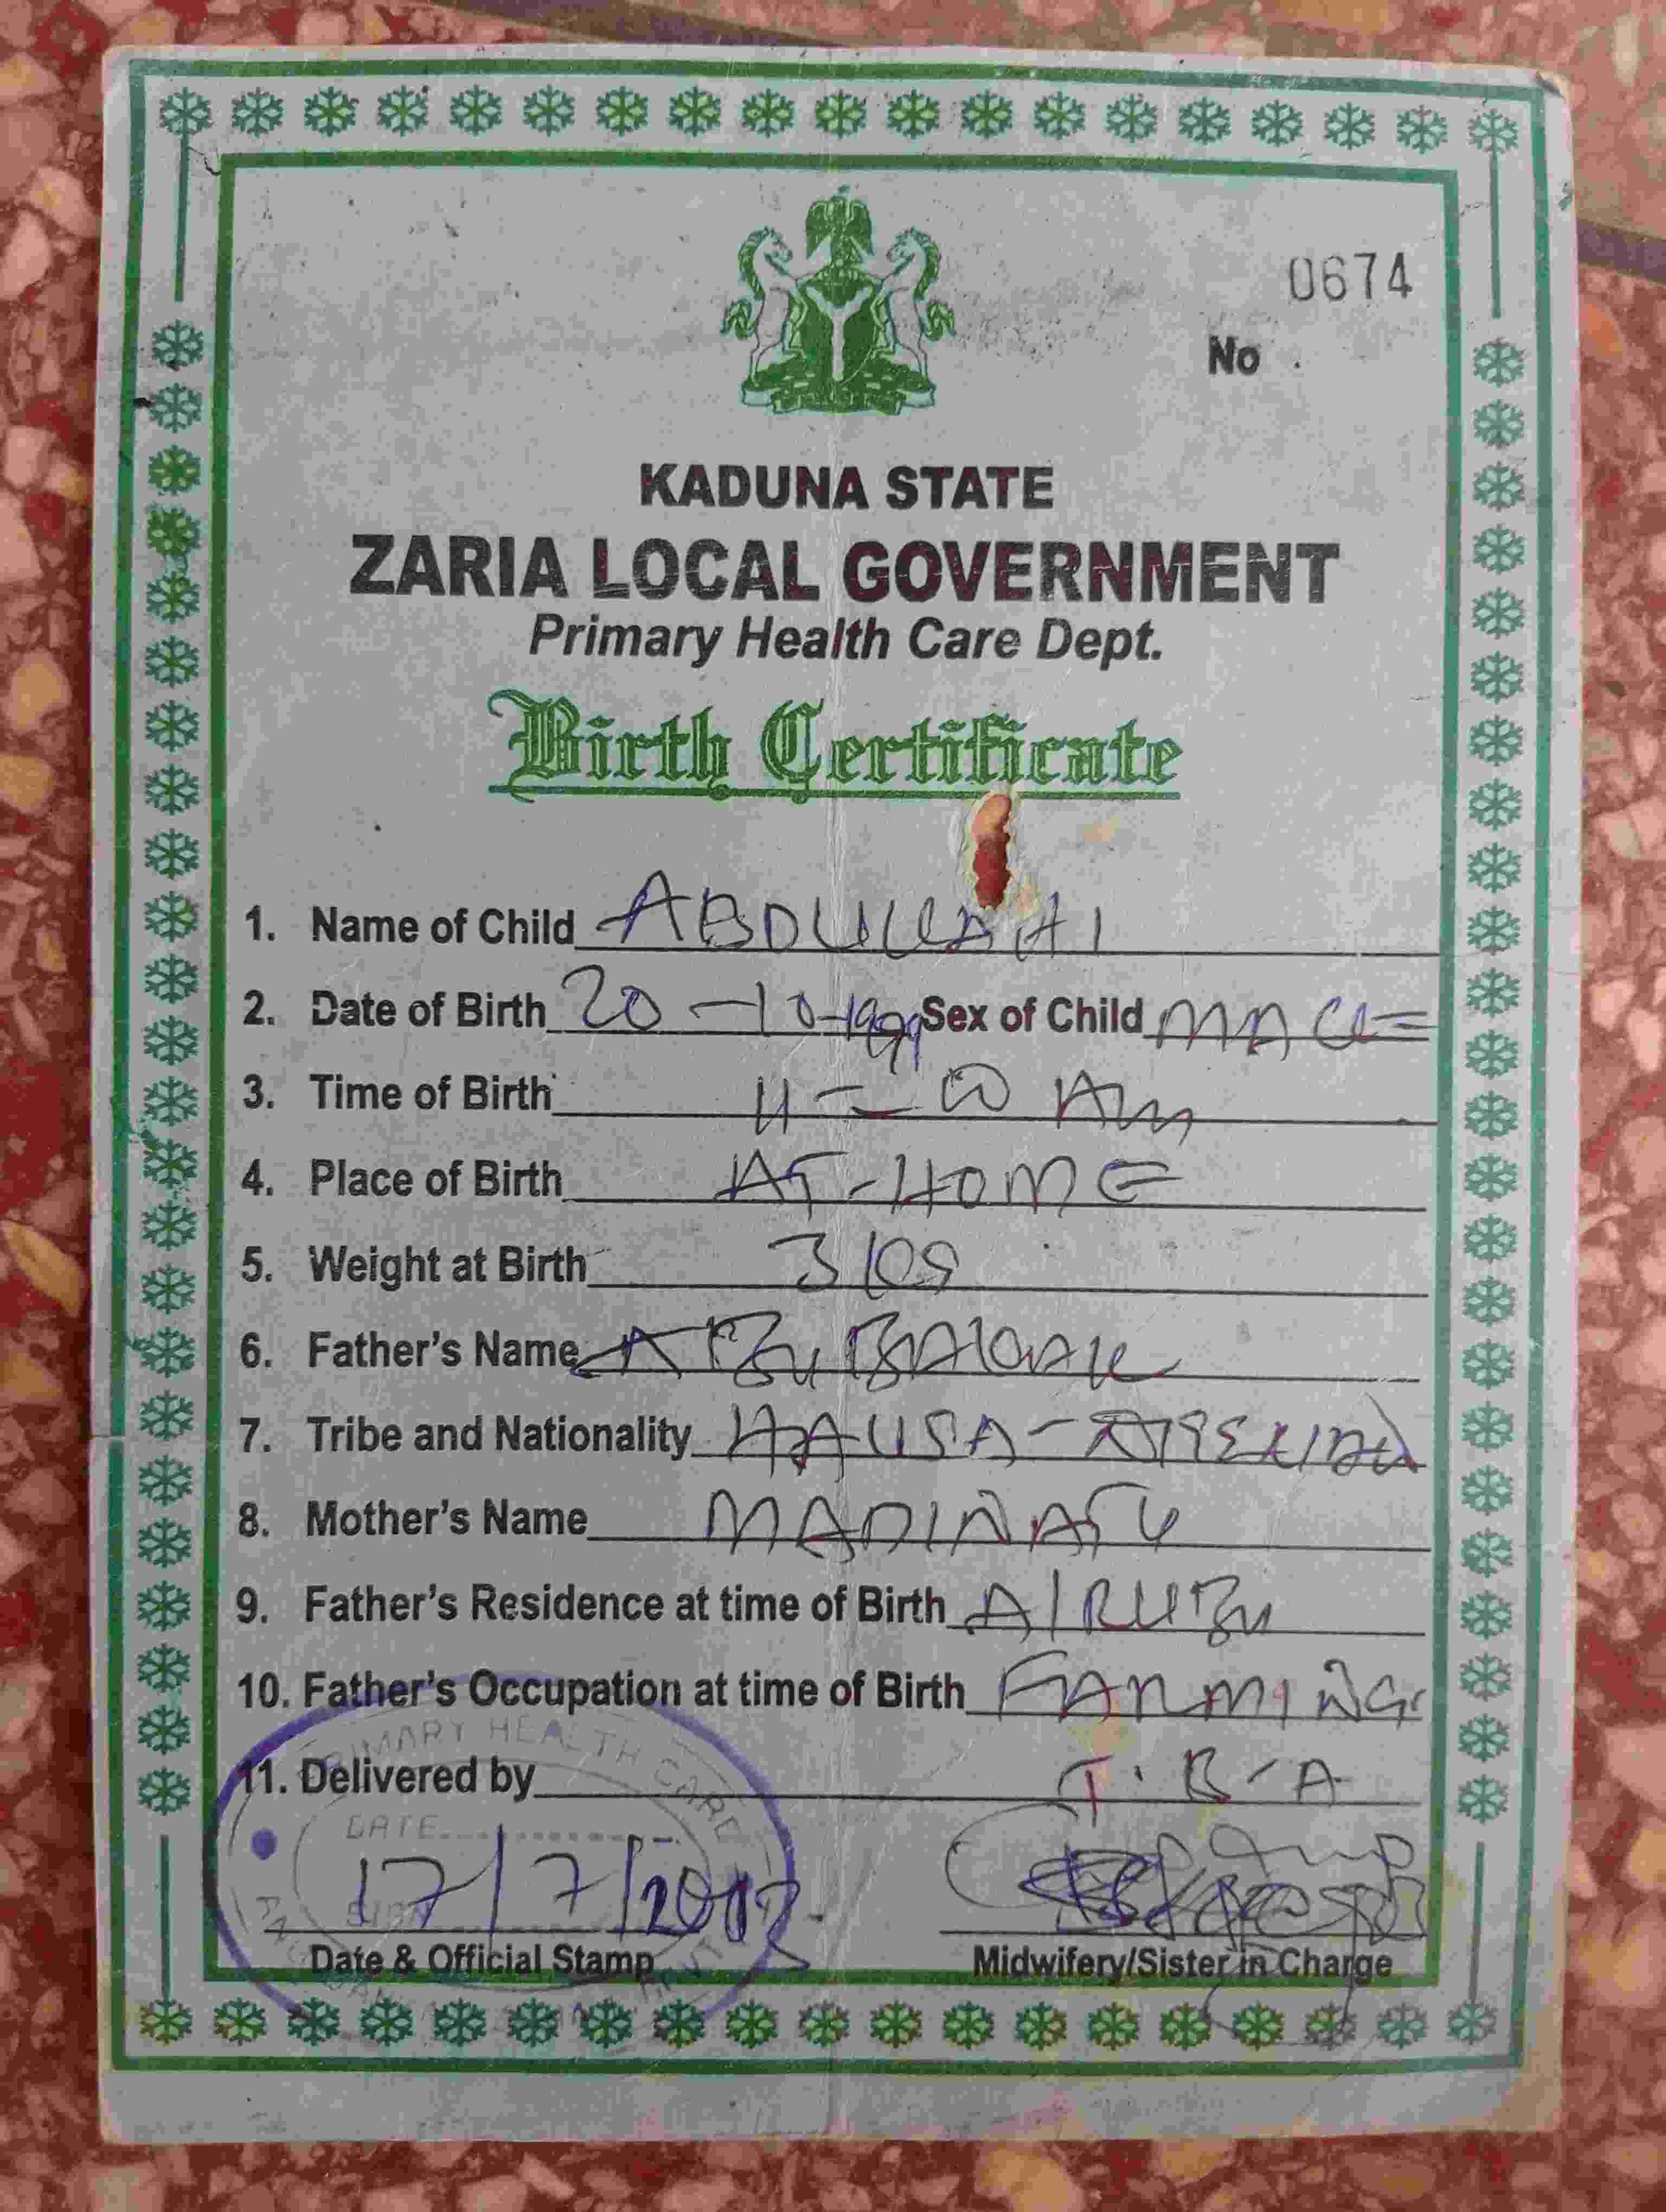 0674
No
KADUNA STATE
ZARIA LOCAL GOVERNMENT
Primary Health Care Dept.
Birth Certificate
1. Name of Child ABDULLAHI
2. Date of Birth 20-10-1999 Sex of Child MALE
3. Time of Birth 11-00 Am
4. Place of Birth AT-HOME
5. Weight at Birth
6. Father's Name
7. Tribe and Nationality HAUSA-
8. Mother's Name MADINATU
9. Father's Residence at time of Birth
10. Father's Occupation at time of Birth FARMING
11. Delivered by T.B.A
PRIMARY HEALTH CARE
DATE
17/7/
Date & Official Stamp
Midwifery/Sister in Charge